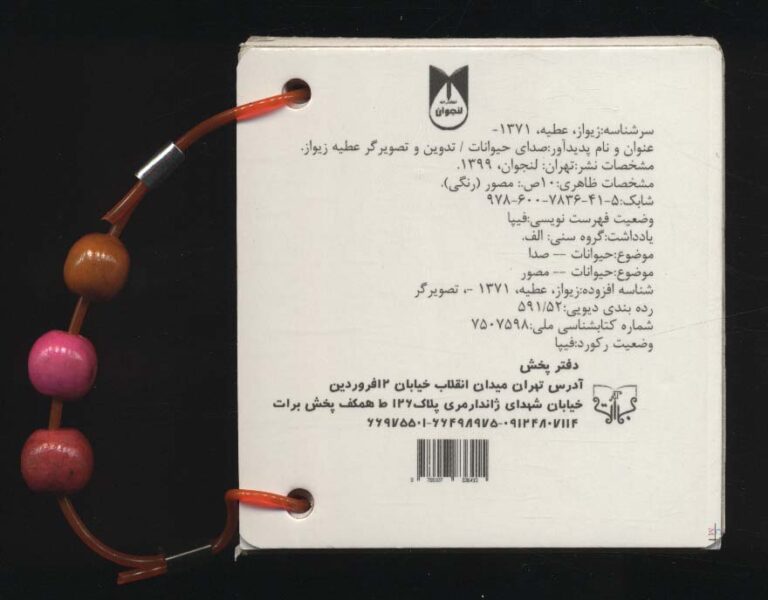 لنجوان
سرشناسه:زیواز، عطیه، ۱۳۷۱-
عنوان و نام پدیدآور:صدای حیوانات / تدوین و تصویرگر عطیه زیواز.
مشخصات نشر:تهران: لنجوان، ۱۳۹۹.
مشخصات ظاهری:۱۰ص.: مصور (رنگی).
شابک:۵-۴۱-۷۸۳۶-۶۰۰-۹۷۸
وضعیت فهرست نویسی:فیپا
یادداشت:گروه سنی: الف.
موضوع:حیوانات -- صدا
موضوع:حیوانات -- مصور
شناسه افزوده:زیواز، عطیه، ۱۳۷۱ -، تصویرگر
رده بندی دیویی:۵۹۱/۵۲
شماره کتابشناسی ملی:۷۵۰۷۵۹۸
وضعیت رکورد:فیپا
دفتر پخش
آدرس تهران میدان انقلاب خیابان ۱۲فروردین
خیابان شهدای ژاندارمری پلاک۱۲۶ ط همکف پخش برات
۶۶۹۷۵۵۰۱-۶۶۴۹۸۹۷۵-۰۹۱۲۴۸۰۷۱۱۴